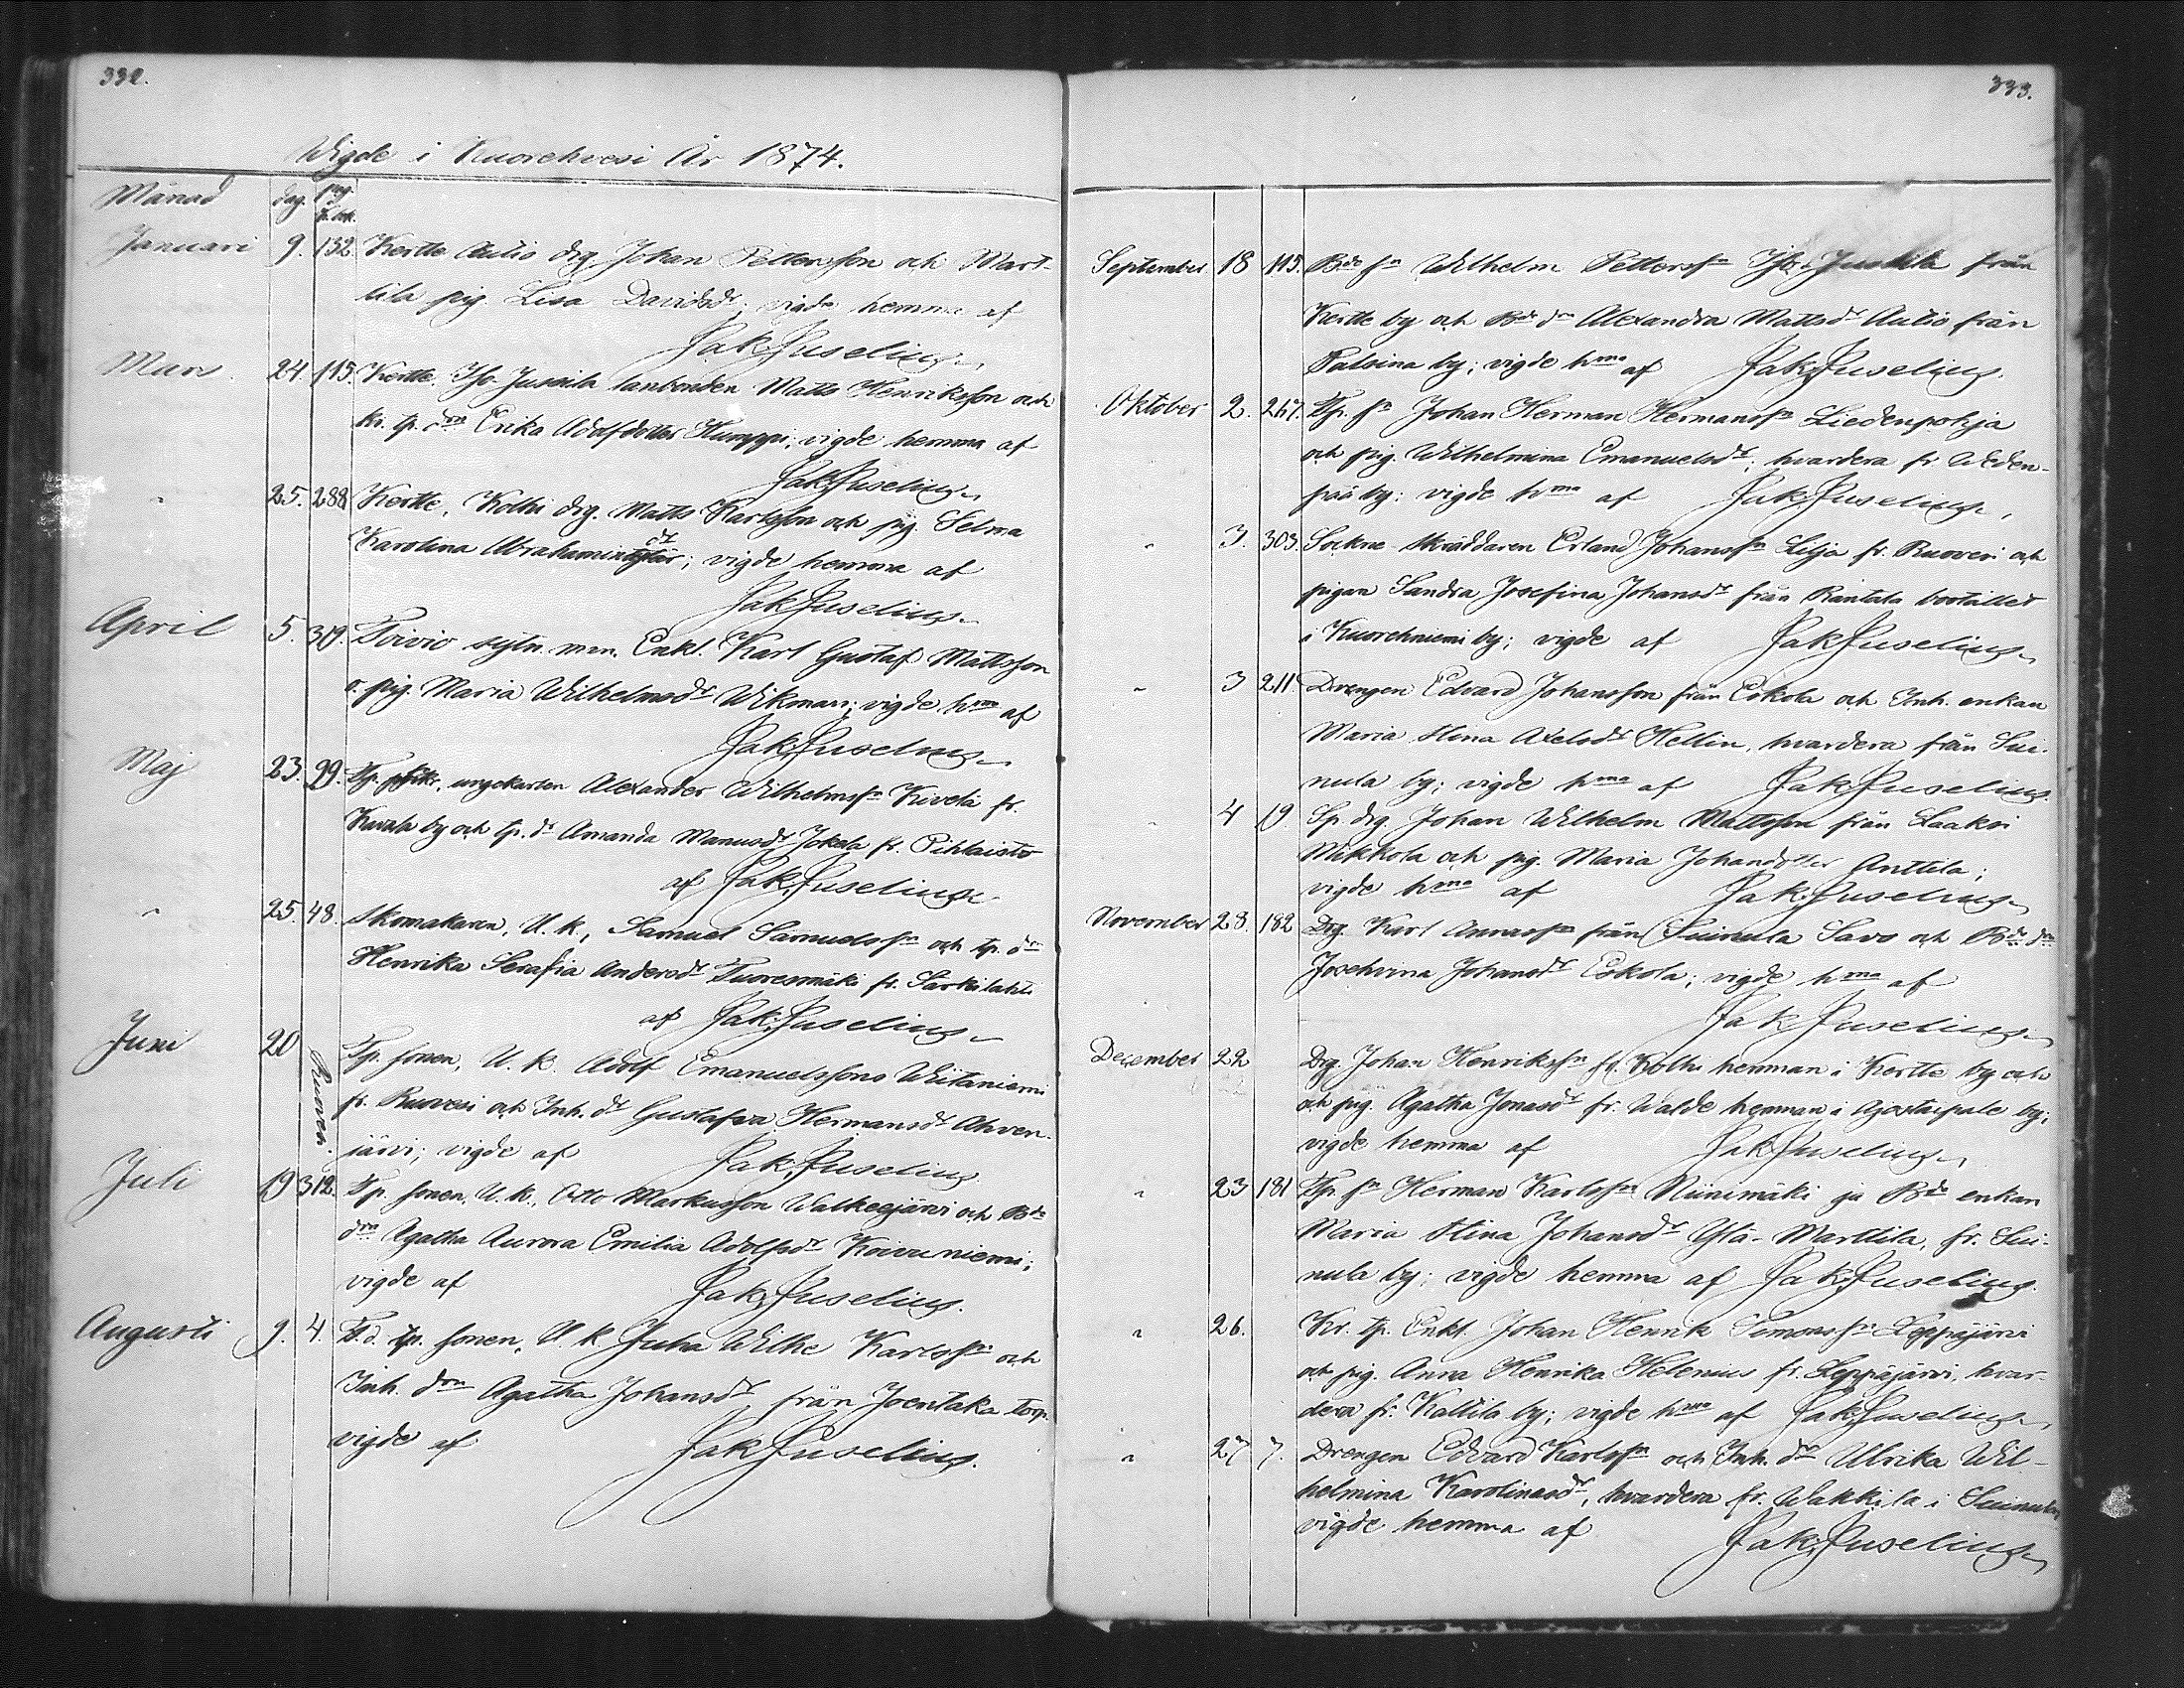 332.
Wigde i Kuorehvesi År 1874.
Månad dag. pag. k. bok.
Januari 9. 132. Kertte Autio drg. Johan Pettersson och Mart-
tila pig. Lisa Davidsdr; vigde hemma af
Jak. Juselius
Mars 24. 115. Kertte Jussila lanbonden Matts Henriksson och
tp. drn Erika Adolfdotter Humppi; vigde hemma af
Jak. Juselius
" 25. 288 Kertte, Kolhi drg. Matts Karlsson och pig. Selma
Karolina; vigde hemma af
Jak. Juselius
April 5. 319. Toivio sytn. Enkl. Karl Gustaf Mattsson
o. pig. Maria Wilhelmsdr Wikman; vigde hma af
Jak. Juselius
Maj 23. 99. Tp. ungekarlen Alexander Wilhelmssn Kivelä fr.
Kavala by och tp. dr Amanda Manusdr Jokela fr. Pihlaisto
af Jak. Juselius
" 25 48. Skomakaren, U. k., Samuel Samuelssn och tp. drn
Henrika Serafia Andersdr Tuoresmäki fr. Särkilahti
af Jak. Juselius
Juni 20 Ruovesi. Tp. sonen, U. k. Adolf Emanuelssons Wiitaniemi
fr. Ruovesi och Inh. dr Gustafva Hermansdr Ahven-
järvi; vigde af Jak. Juselius
Juli 19 312. Tp. sonen, U. k., Otto Markusson Walkeejärvi och Bde
drn Agatha Aurora Emilia Adolfsdr Koivuniemi;
vigde af Jak. Juselius.
Augusti 9. 4. F. d. tp. sonen, U. k. Juha Wilhe Karlssn och
Inh. drn Agatha Johansdr från Joentaka torp
vigde af Jak. Juselius.
333.
September 18 115. Bde sn Wilhelm Petterssn Jussila från
Kertte by och Bde dn Alexandra Mattsdr Autio från
Palsina by; vigde hma af Jak. Juselius.
Oktober 2. 267. Tp. sn Johan Herman Hermanssn Liedenpohja
och pig. Wilhelmina Emanuelsdr; hvardera fr. Weden-
pää by; vigde hma af Jak. Juselius,
" 3. 303. Sockne skräddaren Erland Johanssn Lilja fr. Ruovesi och
pigan Sandra Josefina Johansdr från Rantala bostället
i Kuorehniemi by; vigde af Jak. Juselius
" 3 211 Drengen Edvard Johansson från Eskola och Inh. enkan
Maria Stina Axelsdr Hellin, hvardera från Sui-
nula by; vigde hma af Jak. Juselius.
" 4 19. Sp. drg. Johan Wilhelm Mattsson från Laaksi
Mikkola och pig. Maria Johansdotter Anttila;
vigde hma af Jak. Juselius
November 28. 182 Drg. Karl Annassn från Suinula Savo och Bde drn
Josehvina Johansdr Eskola; vigde hma af
Jak. Juselius
December 22 Drg. Johan Henrikssn fr. Kolhi hemman i Kertte by och
och pig. Agatha Jonasdr fr. Walde hemman i Ajostaipale by;
vigde hemma af Jak. Juselius
" 23 181 Tp. sn Herman Karlssn Niinimäki ja Bde enkan
Maria Stina Johansdr Ylä-Marttila, fr. Sui-
nula by; vigde hemma af Jak. Juselius.
" 26. Kr. tp. Enkl. Johan Henrik Simonssn Leppäjärvi
och pig. Anna Henrika Helenius fr. Leppäjärvi, hvar-
dera fr. Kattila by; vigde hma af Jak. Juselius,
" 27 7. Drengen Edvard Karlssn och Inh. dr Ulrika Wil-
helmina Karolinasdr, hvardera fr. Wakkila i Suinula
vigde hemma af Jak. Juselius